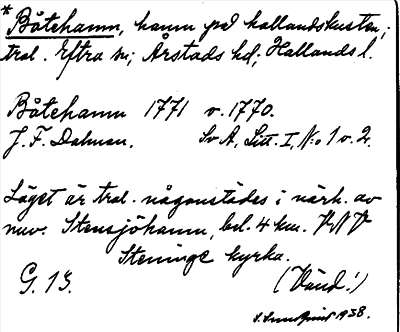 * Båtehamn, hamn på hallandskusten;
trol. Eftra sn; Årstads hd; Hallands l.
Båtehamn 1771 v. 1770.
J. F. Dalman. Sv A, Litt. I, No 1 o. 2.
Läget är trol. någonstädes i närh. av
nuv. Stensjöhamn, bel. 4 km. NNV
Steninge kyrka.
G. 13. (Vänd!)
S. Sundqvist 1938.